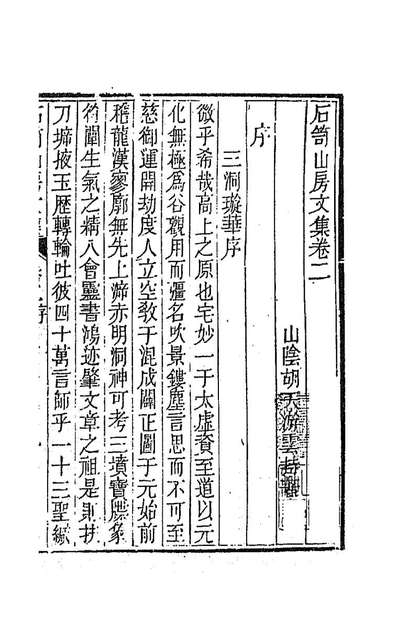 石笥山房文集卷二
山陰胡天游雲持
序
三洞璇華序
微乎希哉高上之原也宅妙一于太虛資至道以元
化無極爲谷觀用而彊名吹景鏤塵言思而不可至
慈御運開劫度人立空敎于混成闢正圖于元始前
稽龍漢寥廓無先上溯赤明洞神可考三墳寶牒象
符闡生氣之精八會靈書鴻迹肇文章之祖是則扶
刀揥掖玉歷轉輪吐彼四十萬言師乎一十三聖